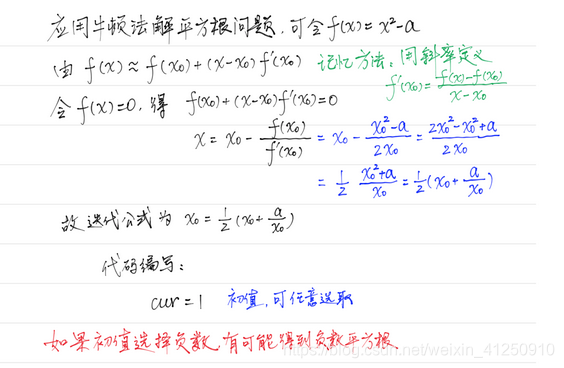 应用牛顿法解平方根问题,可令f(x)=x²-a
由 f(x)≈f(x₀)+(x-x₀)f'(x₀) 记忆方法:用斜率定义
f'(x₀)=\frac{f(x)-f(x₀)}{x-x₀}
令f(x)=0,得 f(x₀)+(x-x₀)f'(x₀)=0
x=x₀-\frac{f(x₀)}{f'(x₀)}=x₀-\frac{x₀²-a}{2x₀}=\frac{2x₀²-x₀²+a}{2x₀}
=\frac{1}{2}\frac{x₀²+a}{x₀}=\frac{1}{2}(x₀+\frac{a}{x₀})
故迭代公式为 x₀=\frac{1}{2}(x₀+\frac{a}{x₀})
代码编写:
cur=1 初值,可任意选取
如果初值选择负数,有可能得到负数平方根.
https://blog.csdn.net/weixin_41250910